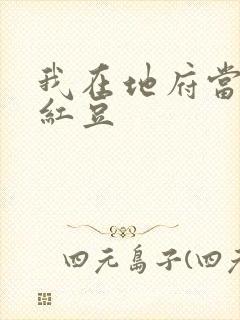 我在地府當
紅豆
四元島子(四元